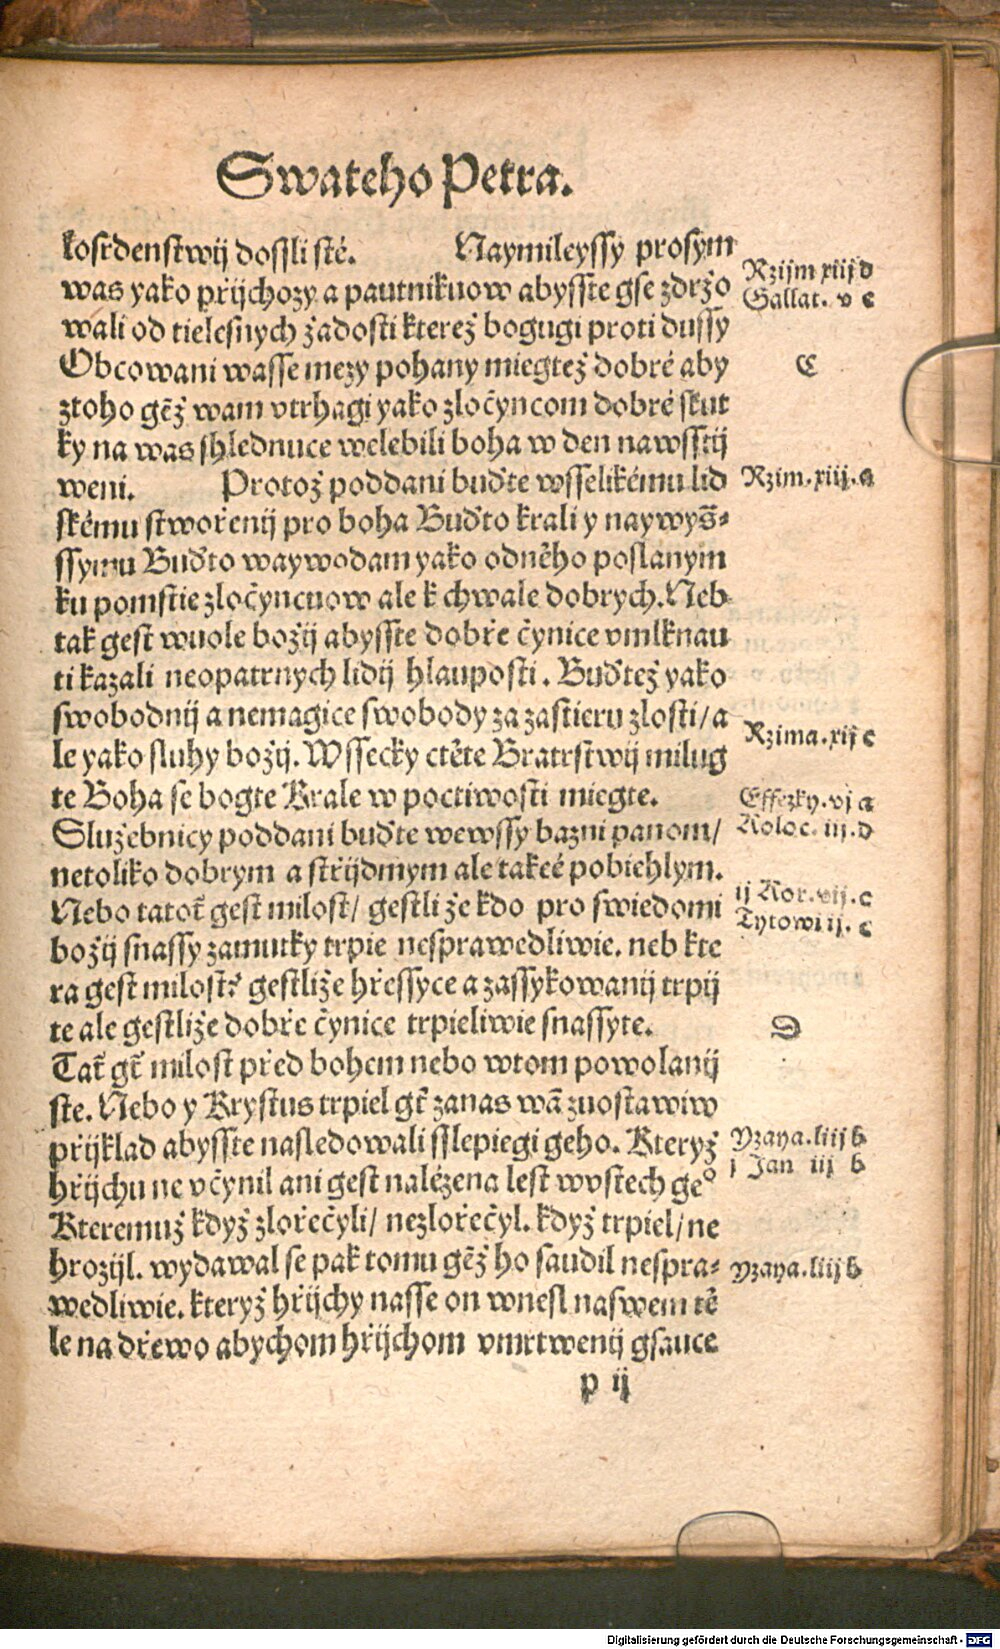 Swateho Petra.
kosrdenstwij dossli sté. Naymileyssy prosym
was yako přijchozy a pautnikuow abysste gse zdržo
wali od tielesnych žadosti kterež bogugi proti dussy
Obcowani wasse mezy pohany miegtež dobré aby
ztoho gēž wam vtrhagi yako zločyncom dobré skut
ky na was shlednuce welebili boha w den nawsstij
weni. Protož poddani buďte wsselikému lid
skému stwořenij pro boha Buďto krali y naywys̄=
ssymu Buďto waywodam yako odněho poslanym
ku pomstie zločyncuow ale k chwale dobrych. Neb
tak gest wuole božij abysste dobře čynice vmlknau
ti kazali neopatrnych lidij hlauposti. Buďtež yako
swobodnij a nemagice swobody za zastieru zlosti/ a
le yako sluhy božij. Wssecky ctěte Bratrstwij milug
te Boha se bogte Krale w poctiwosti miegte.
Služebnicy poddani buďte wewssy bazni panom/
netoliko dobrym a střijdmym ale takeé pobiehlym.
Nebo tatoť gest milost/ gestli že kdo pro swiedomi
božij snassy zamutky trpie nesprawedliwie. neb kte
ra gest milost? gestliže hřessyce a zassykowanij trpij
te ale gestliže dobře čynice trpieliwie snassyte.
Tať gť milost před bohem nebo wtom powolanij
ste. Nebo y Krystus trpiel gť zanas wā zuostawiw
přijklad abysste nasledowali sslepiegi geho. Kteryž
hřijchu ne včynil ani gest naléžena lest wvstech ge°
Kteremuž když zlořečyli/ nezlořečyl. když trpiel/ ne
hrozijl. wydawal se pak tomu gēž ho saudil nespra=
wedliwie. kteryž hřijchy nasse on wnesl naswem tě
le na dřewo abychom hřijchom vmrtwenij gsauce
p ij
Rzijm xiij d
Gallat. v c
C
Rzim. xiij. a
Rzima. xij c
Effezky. vj a
Koloc. iij. d
ij Kor. vij. c
Tytowi ij. c
D
Yzaya. liij b
j Jan iij b
yzaya. liij b
Digitalisierung gefördert durch die Deutsche Forschungsgemeinschaft - DFG